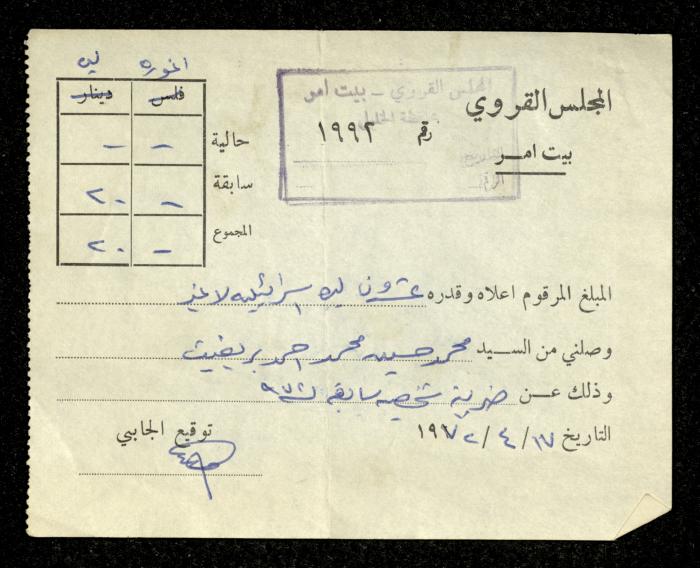 المجلس القروي
بيت امر
المجلس القروي - بيت امر
رقم ١٩٩٢
التاريخ
الرقم
ليره
فلس دينار
حالية - -
سابقة - ٢٠
المجموع - ٢٠
المبلغ المرقوم اعلاه وقدره عشرون ليره اسرائيليه لاغير
وصلني من السيد محمد حسين محمد احمد بريغيث
وذلك عن ضريبة شخصيه سابقه
التاريخ ١٧/٤/١٩٧٢
توقيع الجابي